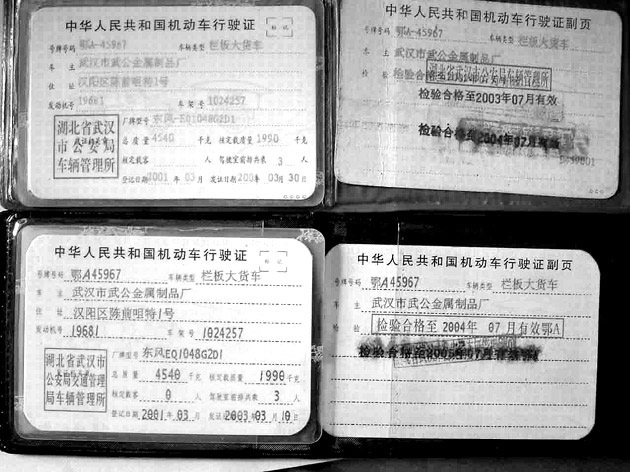 中华人民共和国机动车行驶证
号牌号码 鄂A-45967 车辆类型 栏板大货车
车主 武汉市武公金属制品厂
住址 汉阳区陈前咀特1号
发动机号 19681 车架号 1024257
湖北省武汉
市公安局
车辆管理所
厂牌型号 东风-EQ1048G2D1
总质量 4540 千克 核定载质量 1990 千克
核定载客 人 驾驶室前排共乘 3 人
登记日期 2001 年 03 月 发证日期 200 年 03 月 30 日
中华人民共和国机动车行驶证副页
号牌号码 鄂A-45967 车辆类型 栏板大货车
车主 武汉市武公金属制品厂
检验
检验合格至2003年07月有效
检验合格至2004年07月有效
中华人民共和国机动车行驶证
号牌号码 鄂A45967 车辆类型 栏板大货车
车主 武汉市武公金属制品厂
住址 汉阳区陈前咀特1号
发动机号 19681 车架号 1024257
湖北省武汉市
公安局交通管理
局车辆管理所
厂牌型号 东风EQ1048G2D1
总质量 4540 千克 核定载质量 1990 千克
核定载客 0 人 驾驶室前排共乘 3 人
登记日期 2001 年 03 月 发证日期 2003 年 03 月 10 日
中华人民共和国机动车行驶证副页
号牌号码 鄂A45967 车辆类型 栏板大货车
车主 武汉市武公金属制品厂
检验 检验合格至 2004 年 07 月有效鄂A
检验合格至2005年07月有效鄂